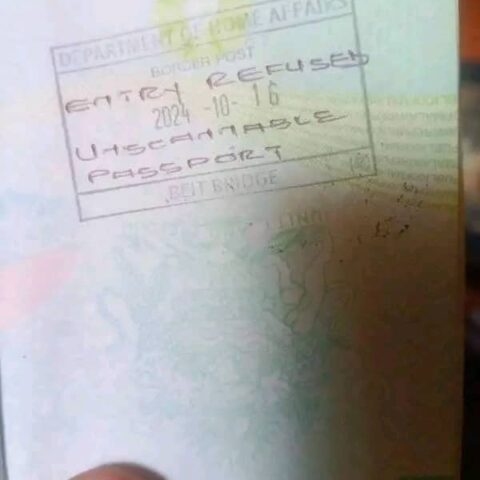 DEPARTMENT OF HOME AFFAIRS
BORDER POST
ENTRY REFUSED
2024 -10- 16
UNSCANNABLE
PASSPORT
BEIT BRIDGE